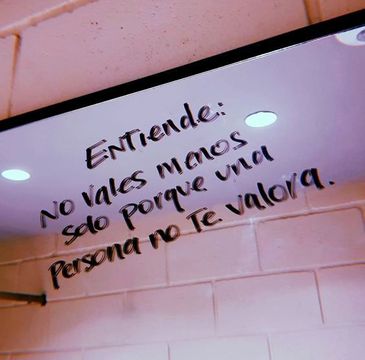 Entiende:
No vales menos
solo porque una
persona no Te valora.